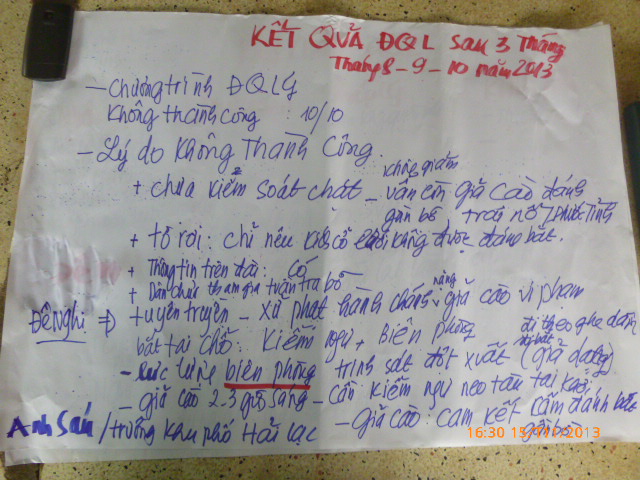 KẾT QUẢ ĐQL sau 3 Tháng
Tháng 8 - 9 - 10 năm 2013
- Chương trình ĐQL
Không thành công : 10/10
- Lý do Không Thành Công.
+ chưa kiểm soát chặt - vẫn còn giã cào đánh
gần bờ
+ tờ rơi : chỉ nêu không được đánh bắt.
+ Thông tin trên đài : Có
+ Dân chưa tham gia tuần tra bờ
Đề Nghị => tuyên truyền - xử phạt hành chánh nặng giã cào vi phạm
bắt tại chỗ : Kiểm ngư + Biên phòng đi theo ghe dân
- Lực lượng biên phòng trinh sát đột xuất (giả dạng)
- giã cào 2-3 giờ sáng - cần kiểm ngư neo tàu tại
Anh Sáu / trưởng khu phố Hải Lạc - giã cào : cam kết cấm đánh bắt
16:30 15/11/2013